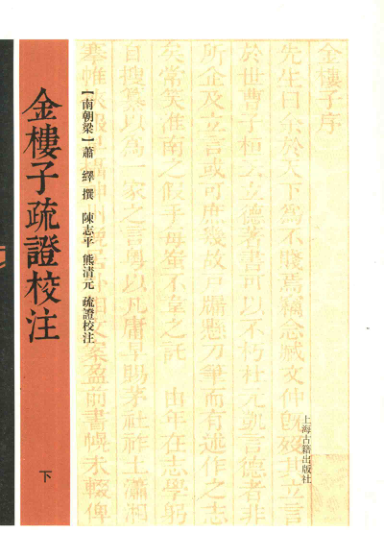 金樓子序
先生曰余於天下為不賤焉竊念臧文仲既歿其立言
於世曹子桓云立德著書可以不朽杜元凱言德者非
所企及立言或可庶幾故戶牖懸刀筆而有述作之志
矣常笑淮南之假手每蚩不韋之託 由年在志學躬
自搜纂以為一家之言粤以凡庸早賜茅社祚土瀟湘
搴帷 盈前書幌未輟俾
上海古籍出版社
【南朝梁】蕭繹 撰 陳志平 熊清元 疏證校注
金樓子疏證校注
下